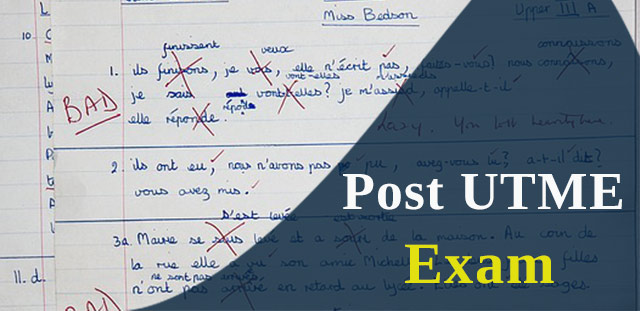 Miss Bedson Upper III A
finissent veux connaissons
10. 1. ils finissons, je vais, elle n'écrit pas, faites-vous? nous connaitons,
vont-elles
je sais vont-elles? je m'assied, appelle-t-il
BAD
répond
elle réponde.
2. ils ont eu, nous n'avons pas pu, avez-vous lu? a-t-il dit?
vous avez mis.
S'est levée est sortie
3a. Marie se sous levé et a sortit de la maison. Au coin de
la rue elle a vu son amie Michel filles
ne sont pas arrivés
11. d. n'ont pas arrivé en retard au lycée.
BAD
Post UTME
Exam